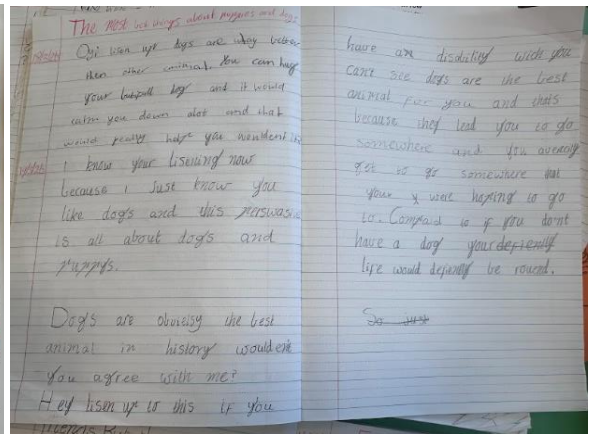 The most best things about puppies and dogs
Oyi lisen up! dogs are way better
then other animal. You can hug
your dog and it would
calm you down alot and that
would really help you wouldent it?
I know your listening now
because I Just know you
like dog's and this perswasi
is all about dog's and
puppys.
Dog's are obvieisy the best
animal in history wouldent
you agree with me?
Hey lisen up to this if you
have an disability wich you
cant see dogs are the best
animal for you and thats
because they lead you to go
somewhere and you
get to go somewhere that
your were hoping to go
to. Compaid to if you dont
have a dog your
life would be
So just